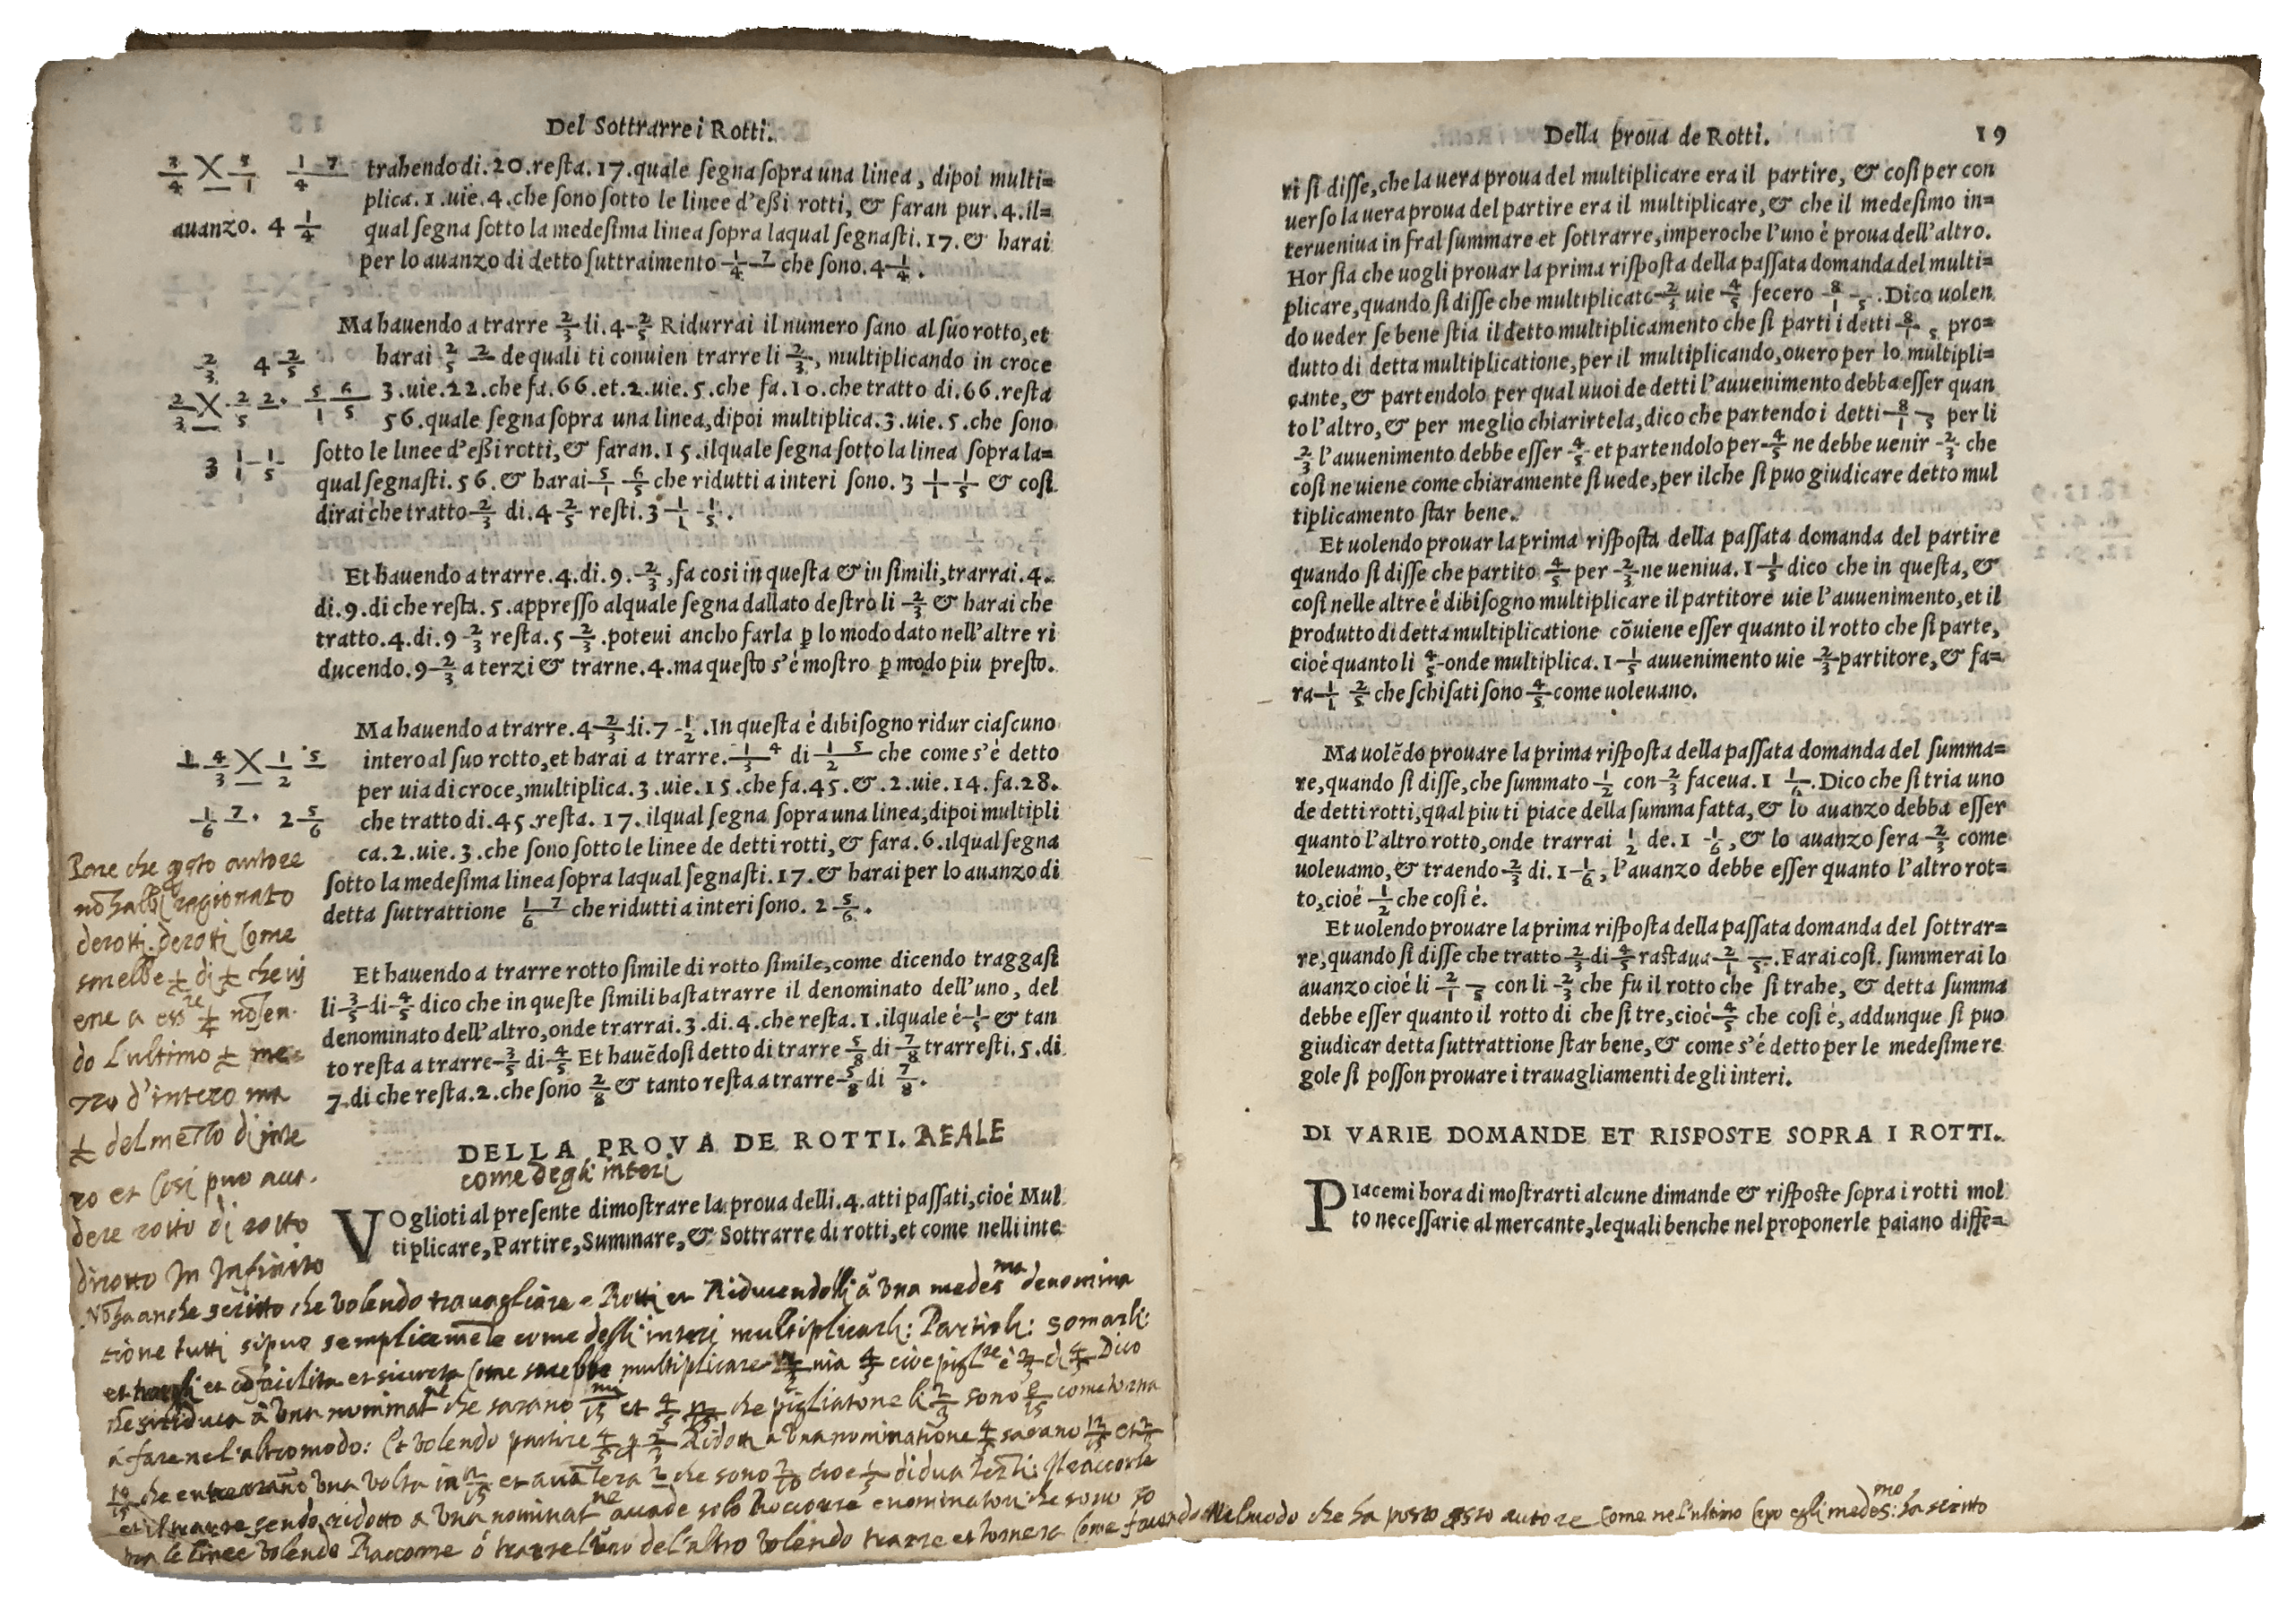 Del Sottrarre i Rotti.
trahendo di. 20. resta. 17. quale segna sopra una linea, dipoi multi=
plica. 1. uie. 4. che sono sotto le linee d'eßi rotti, & faran pur. 4. il=
qual segna sotto la medesima linea sopra laqual segnasti. 17. & harai
per lo auanzo di detto suttraimento 17/4 che sono. 4 1/4.
3/4 X 5/1 17/4
auanzo. 4 1/4
Ma hauendo a trarre 2/3 di. 4 2/5 Ridurrai il numero sano al suo rotto, et
harai 22/5 de quali ti conuien trarre li 2/3, multiplicando in croce
3. uie. 22. che fa. 66. et. 2. uie. 5. che fa. 10. che tratto di. 66. resta
56. quale segna sopra una linea, dipoi multiplica. 3. uie. 5. che sono
sotto le linee d'eßi rotti, & faran. 15. ilquale segna sotto la linea sopra la=
qual segnasti. 56. & harai 56/15 che ridutti a interi sono. 3 11/15 & cosi
dirai che tratto 2/3 di. 4 2/5 resti. 3 11/15.
2/3 4 2/5
2/3 X 22/5. 56/15
3 11/15
Et hauendo a trarre. 4. di. 9. 2/3, fa cosi in questa & in simili, trarrai. 4.
di. 9. di che resta. 5. appresso alquale segna dallato destro li 2/3 & harai che
tratto. 4. di. 9 2/3 resta. 5 2/3. poteui ancho farla ꝑ lo modo dato nell'altre ri
ducendo. 9 2/3 a terzi & trarne. 4. ma questo s'é mostro ꝑ modo piu presto.
Ma hauendo a trarre. 4 2/3 di. 7 1/2. In questa é dibisogno ridur ciascuno
intero al suo rotto, et harai a trarre. 14/3 di 15/2 che come s'é detto
per uia di croce, multiplica. 3. uie. 15. che fa. 45. &. 2. uie. 14. fa. 28.
che tratto di. 45. resta. 17. ilqual segna sopra una linea, dipoi multipli
ca. 2. uie. 3. che sono sotto le linee de detti rotti, & fara. 6. ilqual segna
sotto la medesima linea sopra laqual segnasti. 17. & harai per lo auanzo di
detta suttrattione 17/6 che ridutti a interi sono. 2 5/6.
14/3 X 15/2
17/6. 2 5/6
Et hauendo a trarre rotto simile di rotto simile, come dicendo traggasi
li 3/5 di 4/5 dico che in queste simili basta trarre il denominato dell'uno, del
denominato dell'altro, onde trarrai. 3. di. 4. che resta. 1. ilquale é 1/5 & tan
to resta a trarre 3/5 di 4/5 Et hauẽdosi detto di trarre 5/8 di 7/8 trarresti. 5. di
7. di che resta. 2. che sono 2/8 & tanto resta a trarre 5/8 di 7/8.
DELLA PROVA DE ROTTI. REALE
come degli interi
VOglioti al presente dimostrare la proua delli. 4. atti passati, cioé Mul
tiplicare, Partire, Summare, & Sottrarre di rotti, et come nelli inte
Pare che autore
ragionato
de rotti. de rotti Come
sarebbe 1/2 di 1/2 che vi
ene a 1/4
do l'ultimo 1/2 me
zzo d'intero ma
1/2 del mezzo di inte
ro et Cosi puo
dere rotto di rotto
di rotto In Infinito
anche scritto che volendo travagliare Rotti et Riducendoli à una medes.ma denomina
tione tutti si puo semplicemẽte come delli interi multiplicarli: Partirli: somarli:
et et sicureza Come sarebbe multiplicare 2/3 uia 4/5 cioe 2/3 di 4/5 Dico
à una che sarano et 4/5 che pigliatone li 2/3 sono 8/15 come torna
à fare nel altro modo: Et volendo partire 4/5 2/3 à una nominatione 4/5 sarano 12/15 et 2/3
10/15 che una volta in 12/15 et 2/10 cioe 1/5
ridotto a una solo che sono so
pra le linee volendo Raccorre ó trarre l'uno del'altro volendo trarre et tornera Come facendo Nel modo che ha posto autore Come nel'ultimo egli medes.mo ha scritto
Della proua de Rotti. 19
ri si disse, che la uera proua del multiplicare era il partire, & cosi per con
uerso la uera proua del partire era il multiplicare, & che il medesimo in=
terueniua in fral summare et sottrarre, imperoche l'uno é proua dell'altro.
Hor sia che uogli prouar la prima risposta della passata domanda del multi=
plicare, quando si disse che multiplicato 2/3 uie 4/5 fecero 8/15. Dico uolen
do ueder se bene stia il detto multiplicamento che si parti i detti 8/15 pro=
dutto di detta multiplicatione, per il multiplicando, ouero per lo multipli=
cante, & partendolo per qual uuoi de detti l'auuenimento debba esser quan
to l'altro, & per meglio chiarirtela, dico che partendo i detti 8/15 per li
2/3 l'auuenimento debbe esser 4/5 et partendolo per 4/5 ne debbe uenir 2/3 che
cosi ne uiene come chiaramente si uede, per ilche si puo giudicare detto mul
tiplicamento star bene.
Et uolendo prouar la prima risposta della passata domanda del partire
quando si disse che partito 4/5 per 2/3 ne ueniua. 1 1/5 dico che in questa, &
cosi nelle altre é dibisogno multiplicare il partitore uie l'auuenimento, et il
produtto di detta multiplicatione cõuiene esser quanto il rotto che si parte,
cioé quanto li 4/5 onde multiplica. 1 1/5 auuenimento uie 2/3 partitore, & fa=
ra 12/15 che schisati sono 4/5 come uoleuano.
Ma uolẽdo prouare la prima risposta della passata domanda del summa=
re, quando si disse, che summato 1/2 con 2/3 faceua. 1 1/6. Dico che si tria uno
de detti rotti, qual piu ti piace della summa fatta, & lo auanzo debba esser
quanto l'altro rotto, onde trarrai 1/2 de. 1 1/6, & lo auanzo sera 2/3 come
uoleuamo, & traendo 2/3 di. 1 1/6, l'auanzo debbe esser quanto l'altro rot=
to, cioé 1/2 che cosi é.
Et uolendo prouare la prima risposta della passata domanda del sottrar=
re, quando si disse che tratto 2/3 di 4/5 rastaua 2/15. Farai cosi. summerai lo
auanzo cioé li 2/15 con li 2/3 che fu il rotto che si trahe, & detta summa
debbe esser quanto il rotto di che si tre, cioé 4/5 che cosi é, addunque si puo
giudicar detta suttrattione star bene, & come s'é detto per le medesime re
gole si posson prouare i trauagliamenti de gli interi.
DI VARIE DOMANDE ET RISPOSTE SOPRA I ROTTI.
PIacemi hora di mostrarti alcune dimande & risposte sopra i rotti mol
to necessarie al mercante, lequali benche nel proponerle paiano diffe=